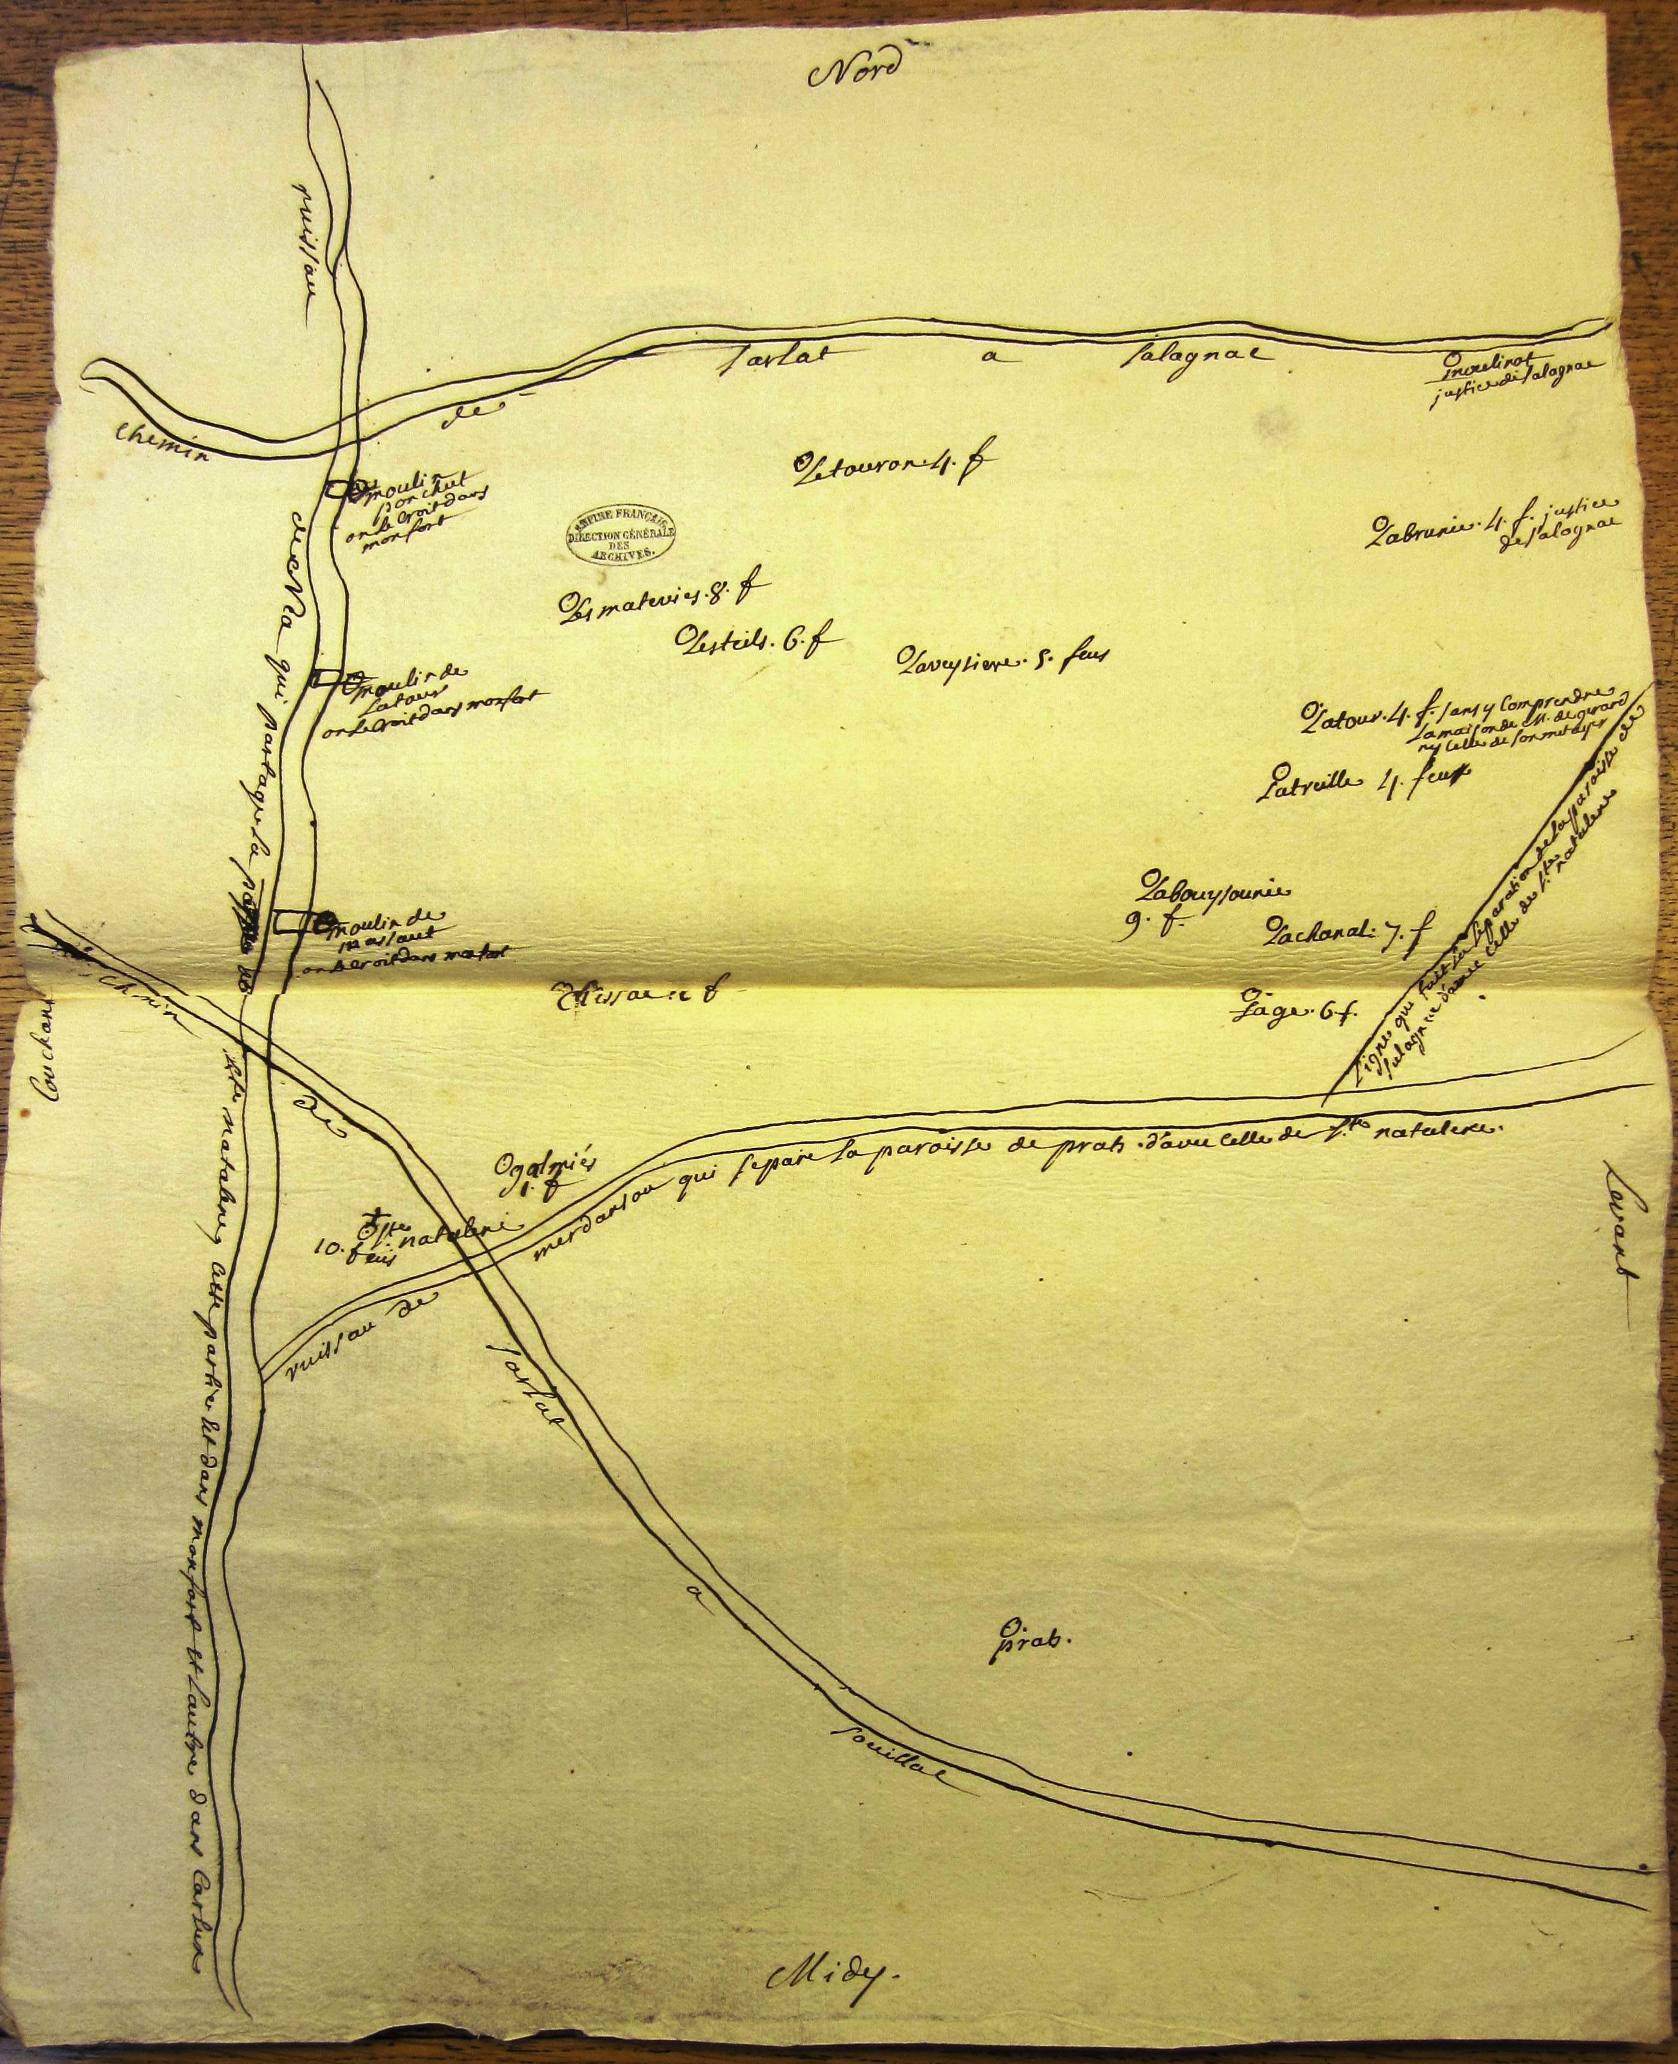 Nord
ruissau
chemin
de
sarlat
a
salagnac
moulinot
justice de salagnac
moulin
ponchut
on le croit dans
monfort
Letouron. 4. f
EMPIRE FRANÇAIS
DIRECTION GÉNÉRALE
DES
ARCHIVES.
Labrunie. 4. f. justice
de salagnac
Les materies. 8. f
Lesteils. 6. f
Laveyssiere. 5. feus
moulin de
Latour
on le croit dans monfort
Latour. 4. f. sans y Comprendre
La maison de M. de girard
ny Celle de son metayer
Latreille 4. feus
qui partage la
Labouyssounie
9. f.
Lachanal. 7. f
moulin de
on le croit dans
Lage. 6 f.
Ligne qui fait la separation de la paroisse de
salagnac d'avec Celle de Ste natalene
Couchant
chemin
de
sarlat
a
souillac
galmiés
1. f
Ste natalene
10. feus
ruissau de
merdansou qui separe La paroisse de prats d'avec Celle de Ste natalene.
Levant
Ste natalene, Cette partie Est dans monfort Et Lautre dans Carlux
prats.
Midy.